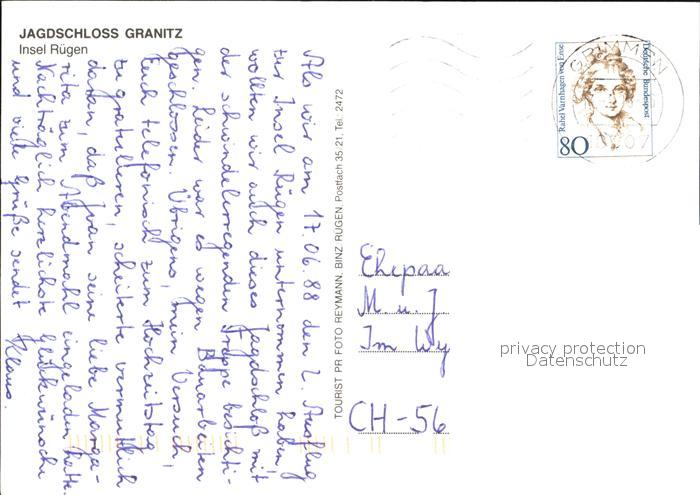 JAGDSCHLOSS GRANITZ
Insel Rügen
Als wir am 17.06.88 den 2. Ausflug
zur Insel Rügen unternommen haben,
wollten wir auch dieses Jagdschloß mit
der schwindelerregenden Treppe besichti-
gen. Leider war es wegen Bauarbeiten
geschlossen. Übrigens, mein Versuch,
Euch telefonisch zum Hochzeitstag
zu gratulieren, scheiterte vermutlich
daran, daß Ivan seine liebe Marga-
rita zum Abendmahl eingeladen hatte.
Nachträglich herzlichste Glückwünsche
und viele Grüße sendet Klaus.
TOURIST PR FOTO REYMANN, BINZ RÜGEN, Postfach 35, 21, Tel.: 2472
Rahel Varnhagen von Ense
Deutsche Bundespost
80
GRIMMEN
Ehepaa
M. u. J
Im Wy
CH-56
privacy protection
Datenschutz